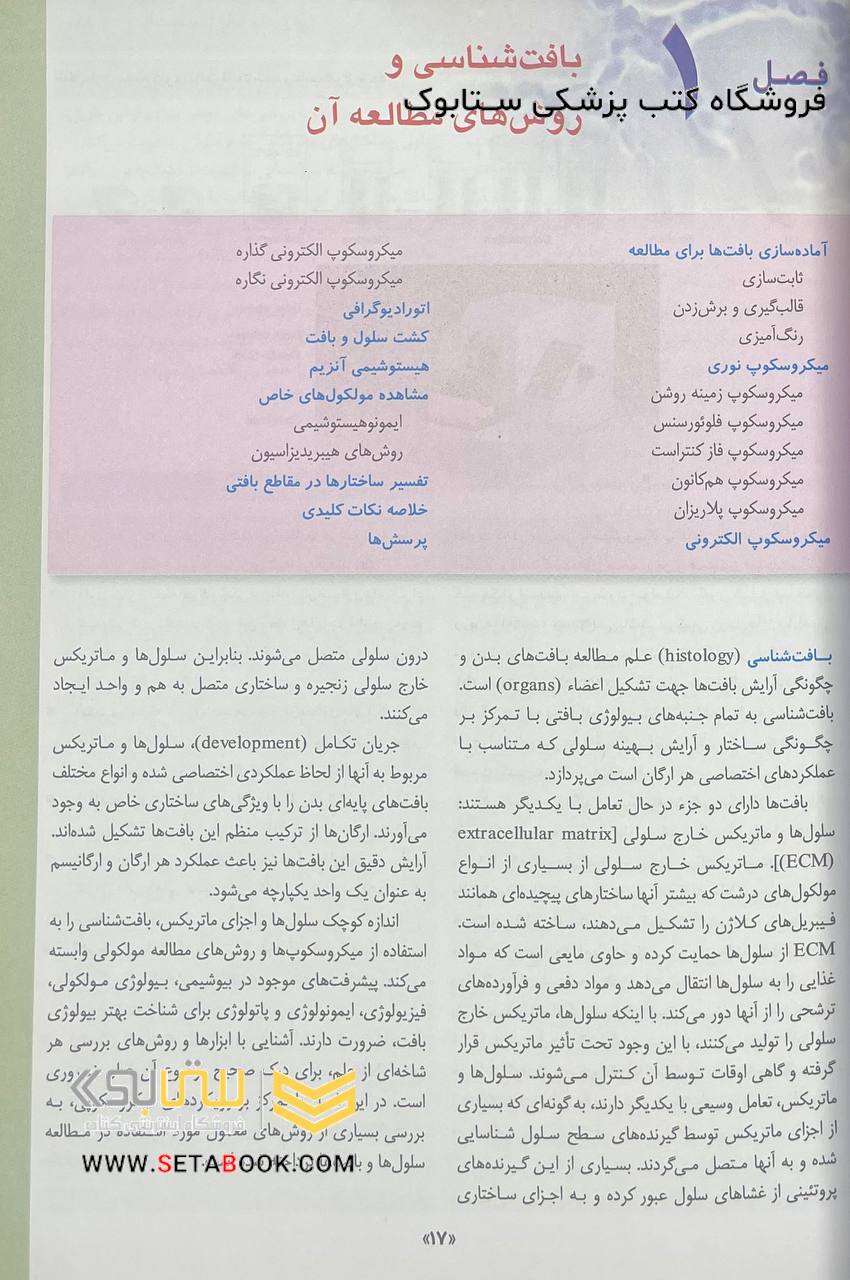 فصل ۱
بافت‌شناسی و
روش‌های مطالعه آن
فروشگاه کتب پزشکی ستابوک
آماده‌سازی بافت‌ها برای مطالعه
ثابت‌سازی
قالب‌گیری و برش‌زدن
رنگ‌آمیزی
میکروسکوپ نوری
میکروسکوپ زمینه روشن
میکروسکوپ فلوئورسنس
میکروسکوپ فاز کنتراست
میکروسکوپ هم‌کانون
میکروسکوپ پلاریزان
میکروسکوپ الکترونی
میکروسکوپ الکترونی گذاره
میکروسکوپ الکترونی نگاره
اتورادیوگرافی
کشت سلول و بافت
هیستوشیمی آنزیم
مشاهده مولکول‌های خاص
ایمونوهیستوشیمی
روش‌های هیبریدیزاسیون
تفسیر ساختارها در مقاطع بافتی
خلاصه نکات کلیدی
پرسش‌ها
بافت‌شناسی (histology) علم مطالعه بافت‌های بدن و
چگونگی آرایش بافت‌ها جهت تشکیل اعضاء (organs) است.
بافت‌شناسی به تمام جنبه‌های بیولوژی بافتی با تمرکز بر
چگونگی ساختار و آرایش بهینه سلولی که متناسب با
عملکردهای اختصاصی هر ارگان است می‌پردازد.
بافت‌ها دارای دو جزء در حال تعامل با یکدیگر هستند:
سلول‌ها و ماتریکس خارج سلولی [extracellular matrix
(ECM)]. ماتریکس خارج سلولی از بسیاری از انواع
مولکول‌های درشت که بیشتر آنها ساختارهای پیچیده‌ای همانند
فیبریل‌های کلاژن را تشکیل می‌دهند، ساخته شده است.
ECM از سلول‌ها حمایت کرده و حاوی مایعی است که مواد
غذایی را به سلول‌ها انتقال می‌دهد و مواد دفعی و فرآورده‌های
ترشحی را از آنها دور می‌کند. با اینکه سلول‌ها، ماتریکس خارج
سلولی را تولید می‌کنند، با این وجود تحت تأثیر ماتریکس قرار
گرفته و گاهی اوقات توسط آن کنترل می‌شوند. سلول‌ها و
ماتریکس، تعامل وسیعی با یکدیگر دارند، به گونه‌ای که بسیاری
از اجزای ماتریکس توسط گیرنده‌های سطح سلول شناسایی
شده و به آنها متصل می‌گردند. بسیاری از این گیرنده‌های
پروتئینی از غشاهای سلول عبور کرده و به اجزای ساختاری
درون سلولی متصل می‌شوند. بنابراین سلول‌ها و ماتریکس
خارج سلولی زنجیره و ساختاری متصل به هم و واحد ایجاد
می‌کنند.
جریان تکامل (development)، سلول‌ها و ماتریکس
مربوط به آنها از لحاظ عملکردی اختصاصی شده و انواع مختلف
بافت‌های پایه‌ای بدن را با ویژگی‌های ساختاری خاص به وجود
می‌آورند. ارگان‌ها از ترکیب منظم این بافت‌ها تشکیل شده‌اند.
آرایش دقیق این بافت‌ها نیز باعث عملکرد هر ارگان و ارگانیسم
به عنوان یک واحد یکپارچه می‌شود.
اندازه کوچک سلول‌ها و اجزای ماتریکس، بافت‌شناسی را به
استفاده از میکروسکوپ‌ها و روش‌های مطالعه مولکولی وابسته
می‌کند. پیشرفت‌های موجود در بیوشیمی، بیولوژی مولکولی،
فیزیولوژی، ایمونولوژی و پاتولوژی برای شناخت بهتر بیولوژی
بافت، ضرورت دارند. آشنایی با ابزارها و روش‌های بررسی هر
شاخه‌ای از علم، برای درک صحیح آن ضروری
است. در این به
بررسی بسیاری از روش‌های معمول مورد استفاده در مطالعه
سلول‌ها و
ستابوک
فروشگاه اینترنتی کتاب
WWW.SETABOOK.COM
«۱۷»